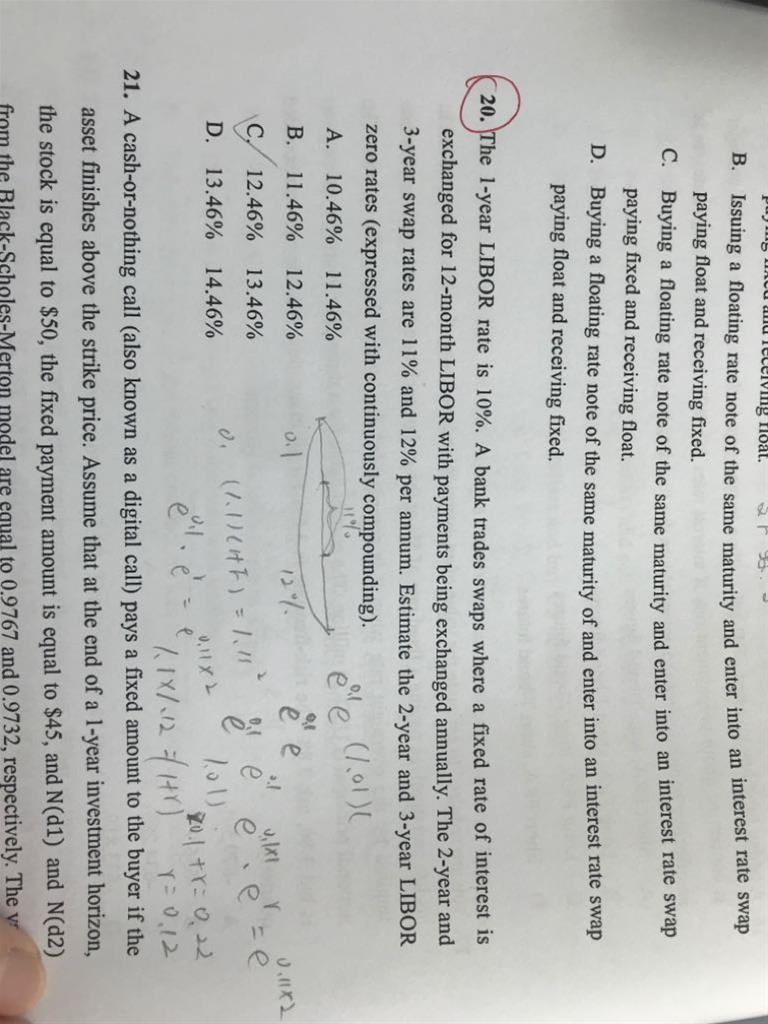 B. Issuing a floating rate note of the same maturity and enter into an interest rate swap
paying float and receiving fixed.
C. Buying a floating rate note of the same maturity and enter into an interest rate swap
paying fixed and receiving float.
D. Buying a floating rate note of the same maturity of and enter into an interest rate swap
paying float and receiving fixed.
20. The 1-year LIBOR rate is 10%. A bank trades swaps where a fixed rate of interest is
exchanged for 12-month LIBOR with payments being exchanged annually. The 2-year and
3-year swap rates are 11% and 12% per annum. Estimate the 2-year and 3-year LIBOR
zero rates (expressed with continuously compounding).
A. 10.46% 11.46%
B. 11.46% 12.46%
C. 12.46% 13.46%
D. 13.46% 14.46%
11%
0.1 12%
e^0.1 e (1.01)(
e^0.1 e
0. (1.1)(1+F) = 1.11^2
e^0.1×1 · e^r = e^0.11×2
e^0.1 · e^r = e^0.11×2
0.1+r=0.22
1.1×1.12=(1+r)
r=0.12
21. A cash-or-nothing call (also known as a digital call) pays a fixed amount to the buyer if the
asset finishes above the strike price. Assume that at the end of a 1-year investment horizon,
the stock is equal to $50, the fixed payment amount is equal to $45, and N(d1) and N(d2)
from the Black-Scholes-Merton model are equal to 0.9767 and 0.9732, respectively. The